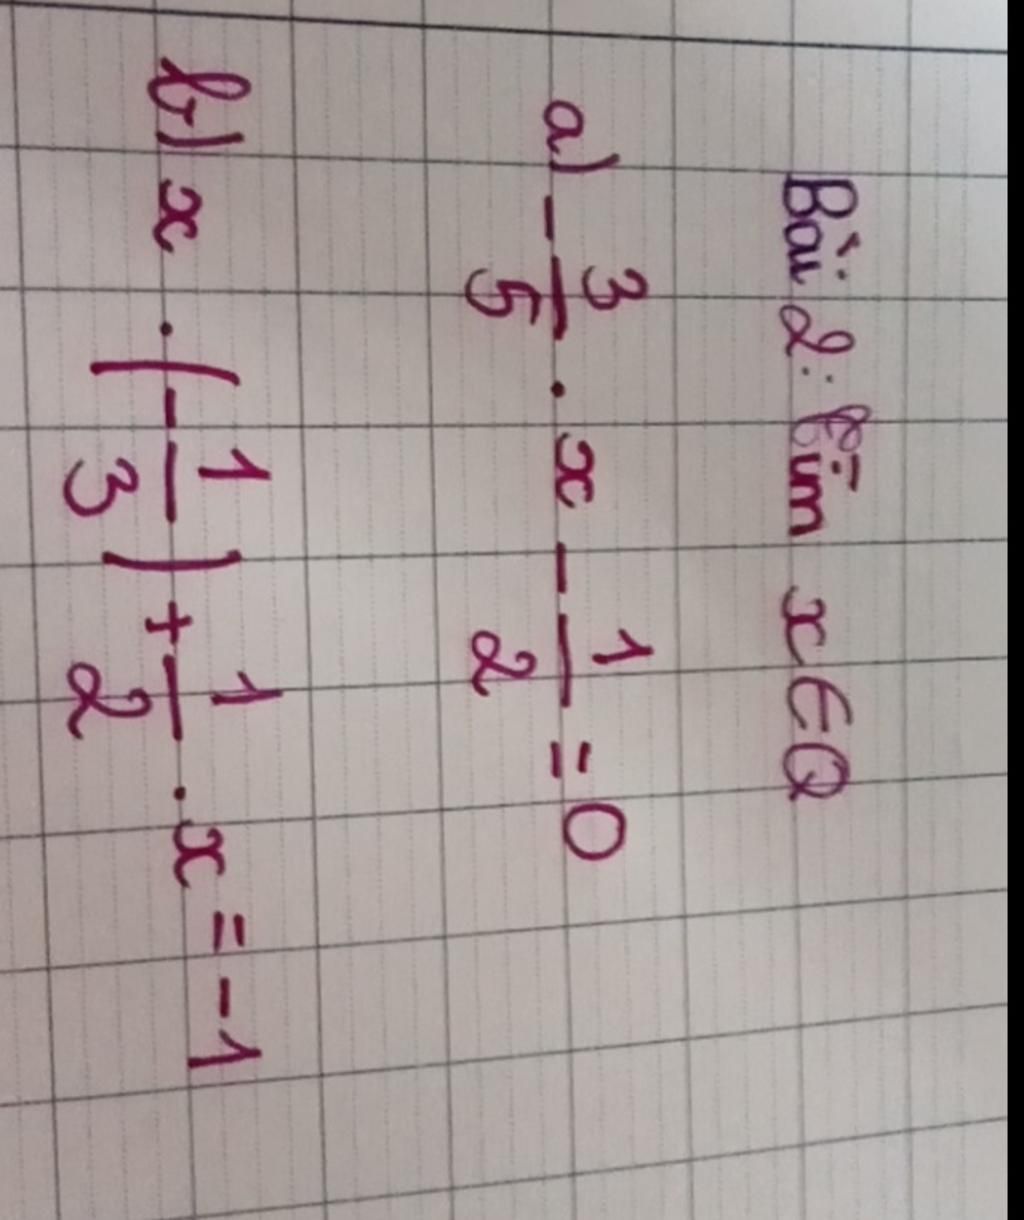 Bài 2: Tìm x ∈ Q
a) - 3/5 . x - 1/2 = 0
b) x . (- 1/3) + 1/2 . x = -1